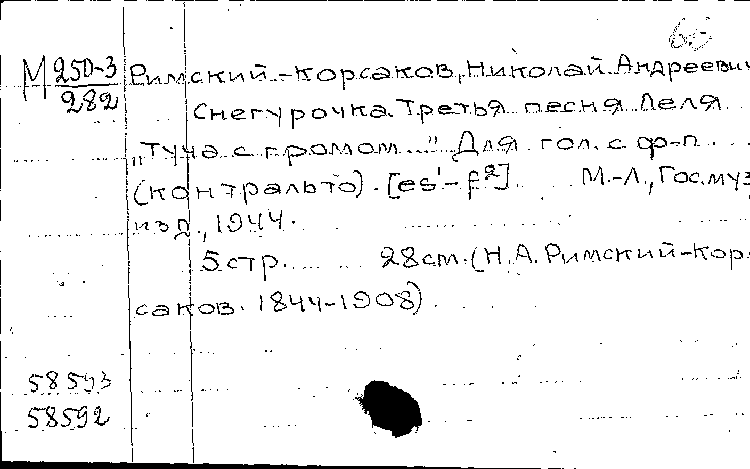 М 250-3
282
Римский-Корсаков, Николай Андреевич
Снегурочка. Третья песня Леля
„Туча с громом..." Для гол. с ф-п
(контральто). [es¹-f²] М.-Л., Гос. муз
изд., 1944.
5 стр. 28 см. (Н.А. Римский-Кор
саков. 1844-1908)
58593
58592